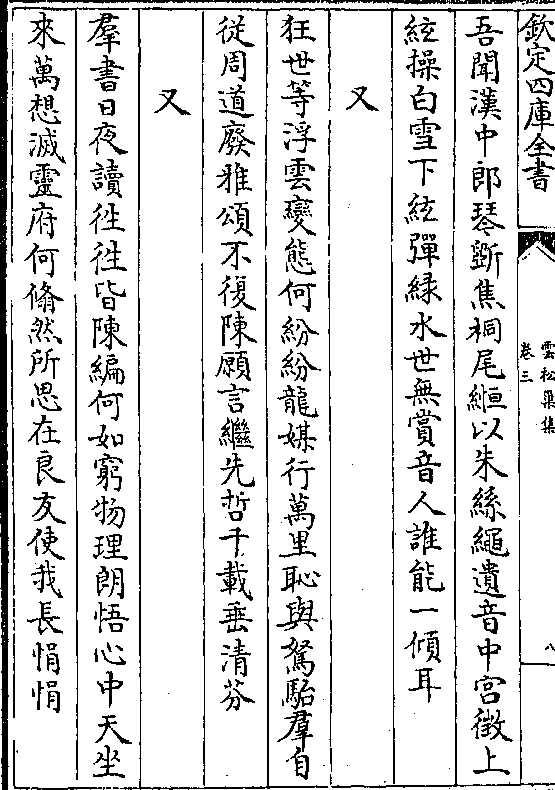 欽定四庫全書
雲松巢集
卷三
八
吾聞漢中郎琴斵焦桐尾緪以朱絲繩遺音中宮徵上
絃操白雪下絃彈緑水世無賞音人誰能一傾耳
又
狂世等浮雲變態何紛紛龍媒行萬里恥與駑駘羣自
從周道廢雅頌不復陳願言繼先哲千載垂清芬
又
羣書日夜讀徃徃皆陳編何如窮物理朗悟心中天坐
來萬想滅靈府何翛然所思在良友使我長悁悁